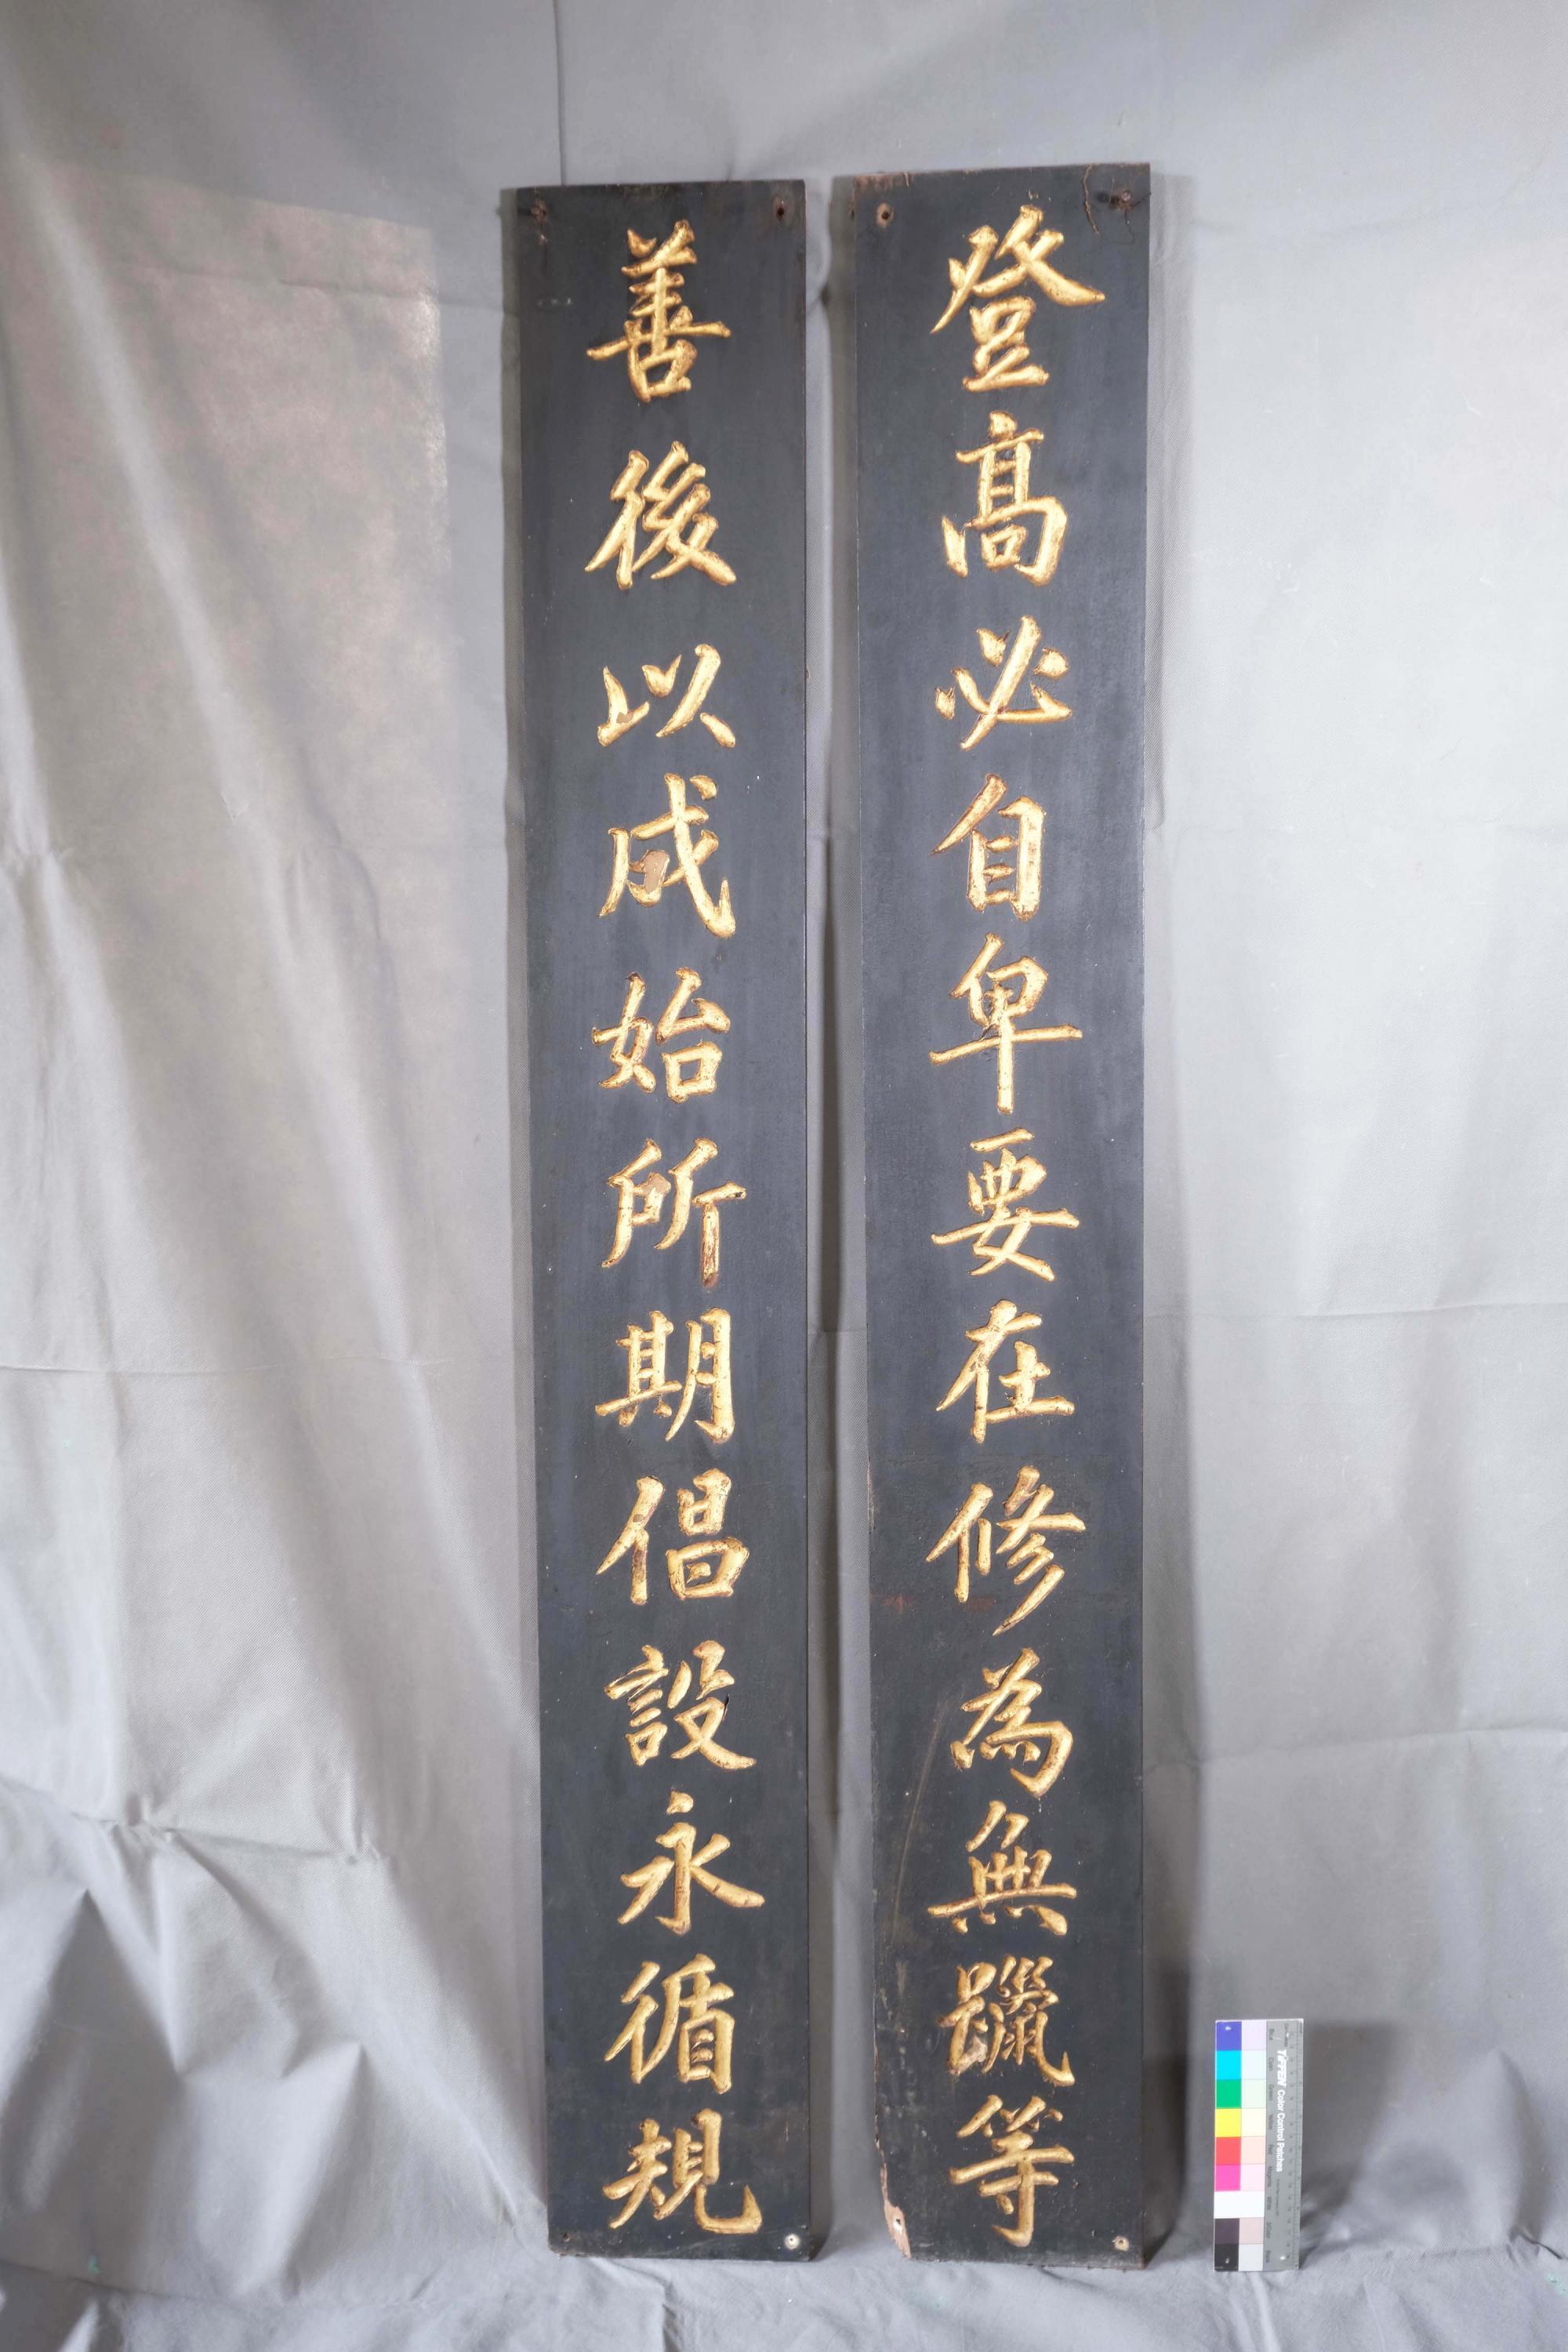 登高必自卑要在修為無躐等
善後以成始所期倡設永循規
TIFFEN Color Control Patches